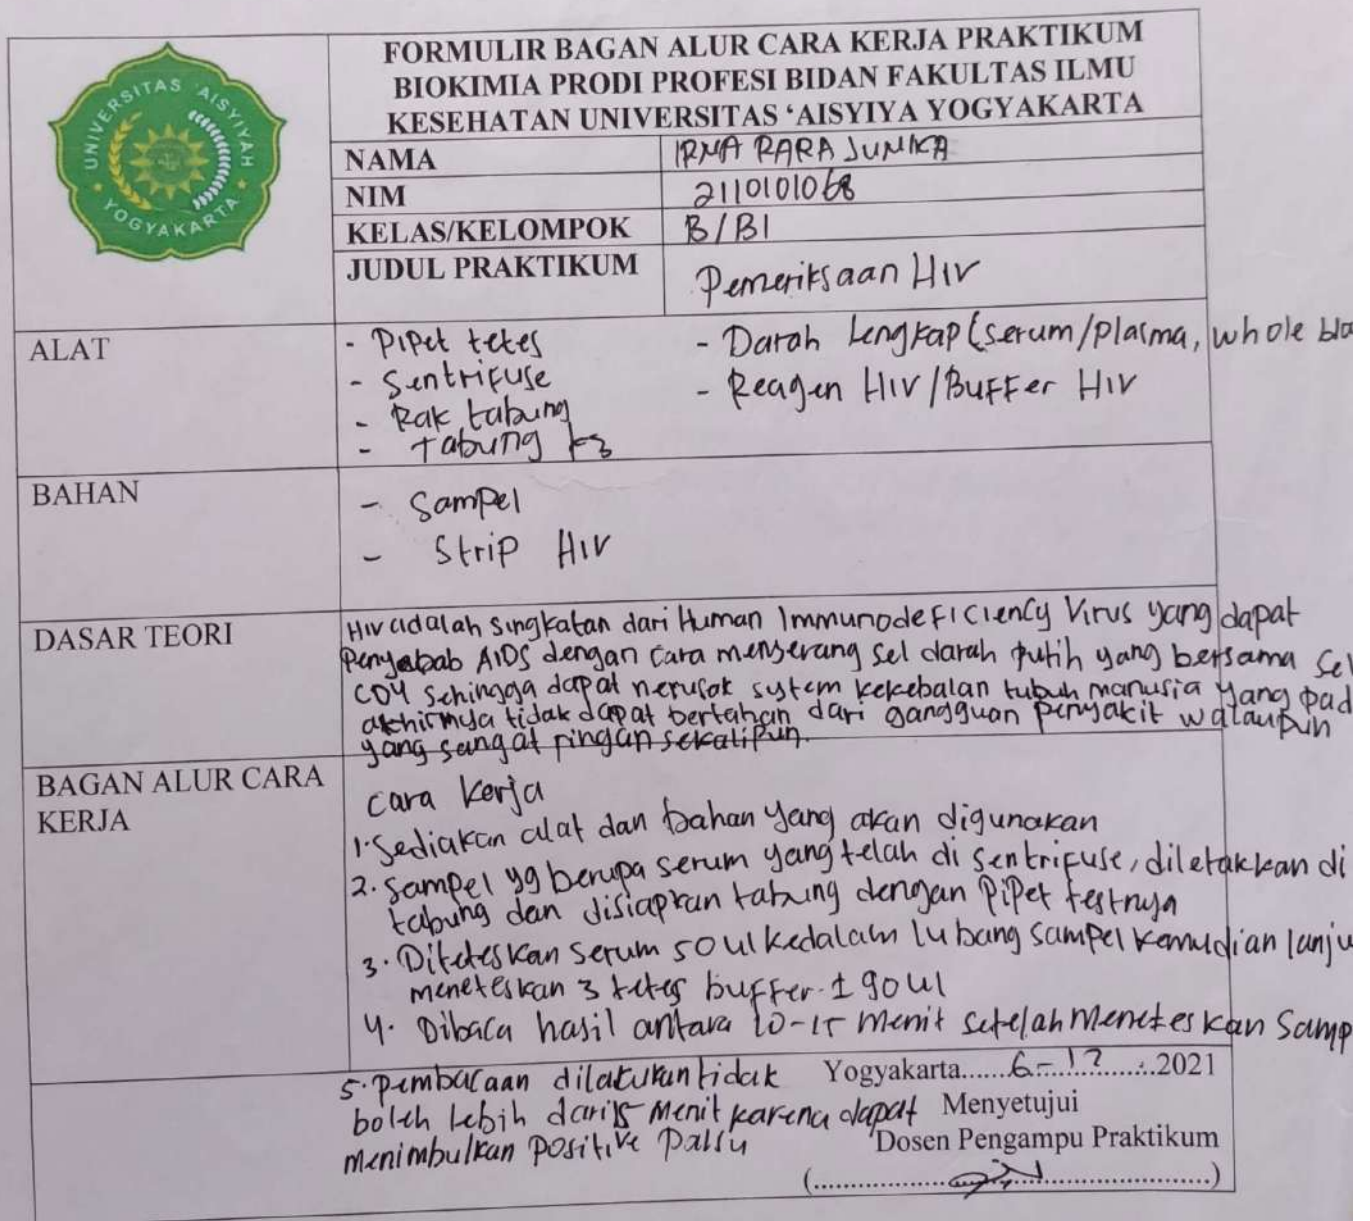 FORMULIR BAGAN ALUR CARA KERJA PRAKTIKUM
BIOKIMIA PRODI PROFESI BIDAN FAKULTAS ILMU
KESEHATAN UNIVERSITAS ‘AISYIYA YOGYAKARTA
UNIVERSITAS 'AISYIYAH
YOGYAKARTA
NAMA IRMA RARA JUNIKA
NIM 2110101068
KELAS/KELOMPOK B/B1
JUDUL PRAKTIKUM Pemeriksaan HIV
ALAT
- Pipet tetes - Darah Lengkap (serum/plasma, whole blo
- Sentrifuse - Reagen HIV/Buffer HIV
- Rak tabung
- Tabung k3
BAHAN
- Sampel
- Strip HIV
DASAR TEORI
HIV adalah singkatan dari Human Immunodeficiency Virus yang dapat
Penyebab AIDS dengan cara menserang sel darah putih yang bersama sel
CD4 sehingga dapat nerusak system kekebalan tubuh manusia yang pad
akhirnya tidak dapat bertahan dari gangguan penyakit walaupun
yang sangat ringan sekalipun.
BAGAN ALUR CARA
KERJA
Cara Kerja
1. Sediakan alat dan bahan yang akan digunakan
2. Sampel yg berupa serum yang telah di sentrifuse, diletakkan di
tabung dan disiapkan tabung dengan Pipet testnya
3. Diteteskan serum 50 ul kedalam lubang sampel kemudian lanju
meneteskan 3 tetes buffer ± 90 ul
4. Dibaca hasil antara 10-15 menit setelah meneteskan Samp
5. pembacaan dilakukan tidak
boleh lebih dari 15 menit karena dapat
menimbulkan Positive Palsu
Yogyakarta......6-12........2021
Menyetujui
Dosen Pengampu Praktikum
(............................................)